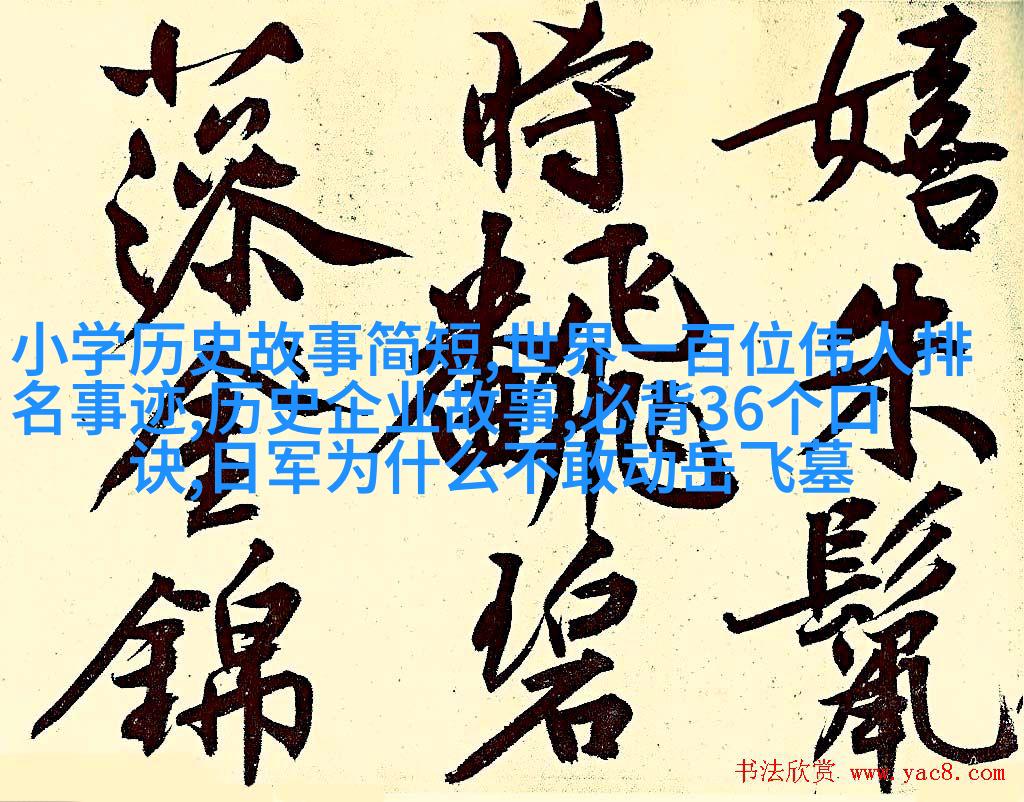 小学历史故事简短,世界一百位伟人排
名事迹,历史企业故事,必背36个口
诀,日军为什么不敢动岳飞墓
嬉朱鬣
時飜碧
錦
书法欣赏 www.yac8.com